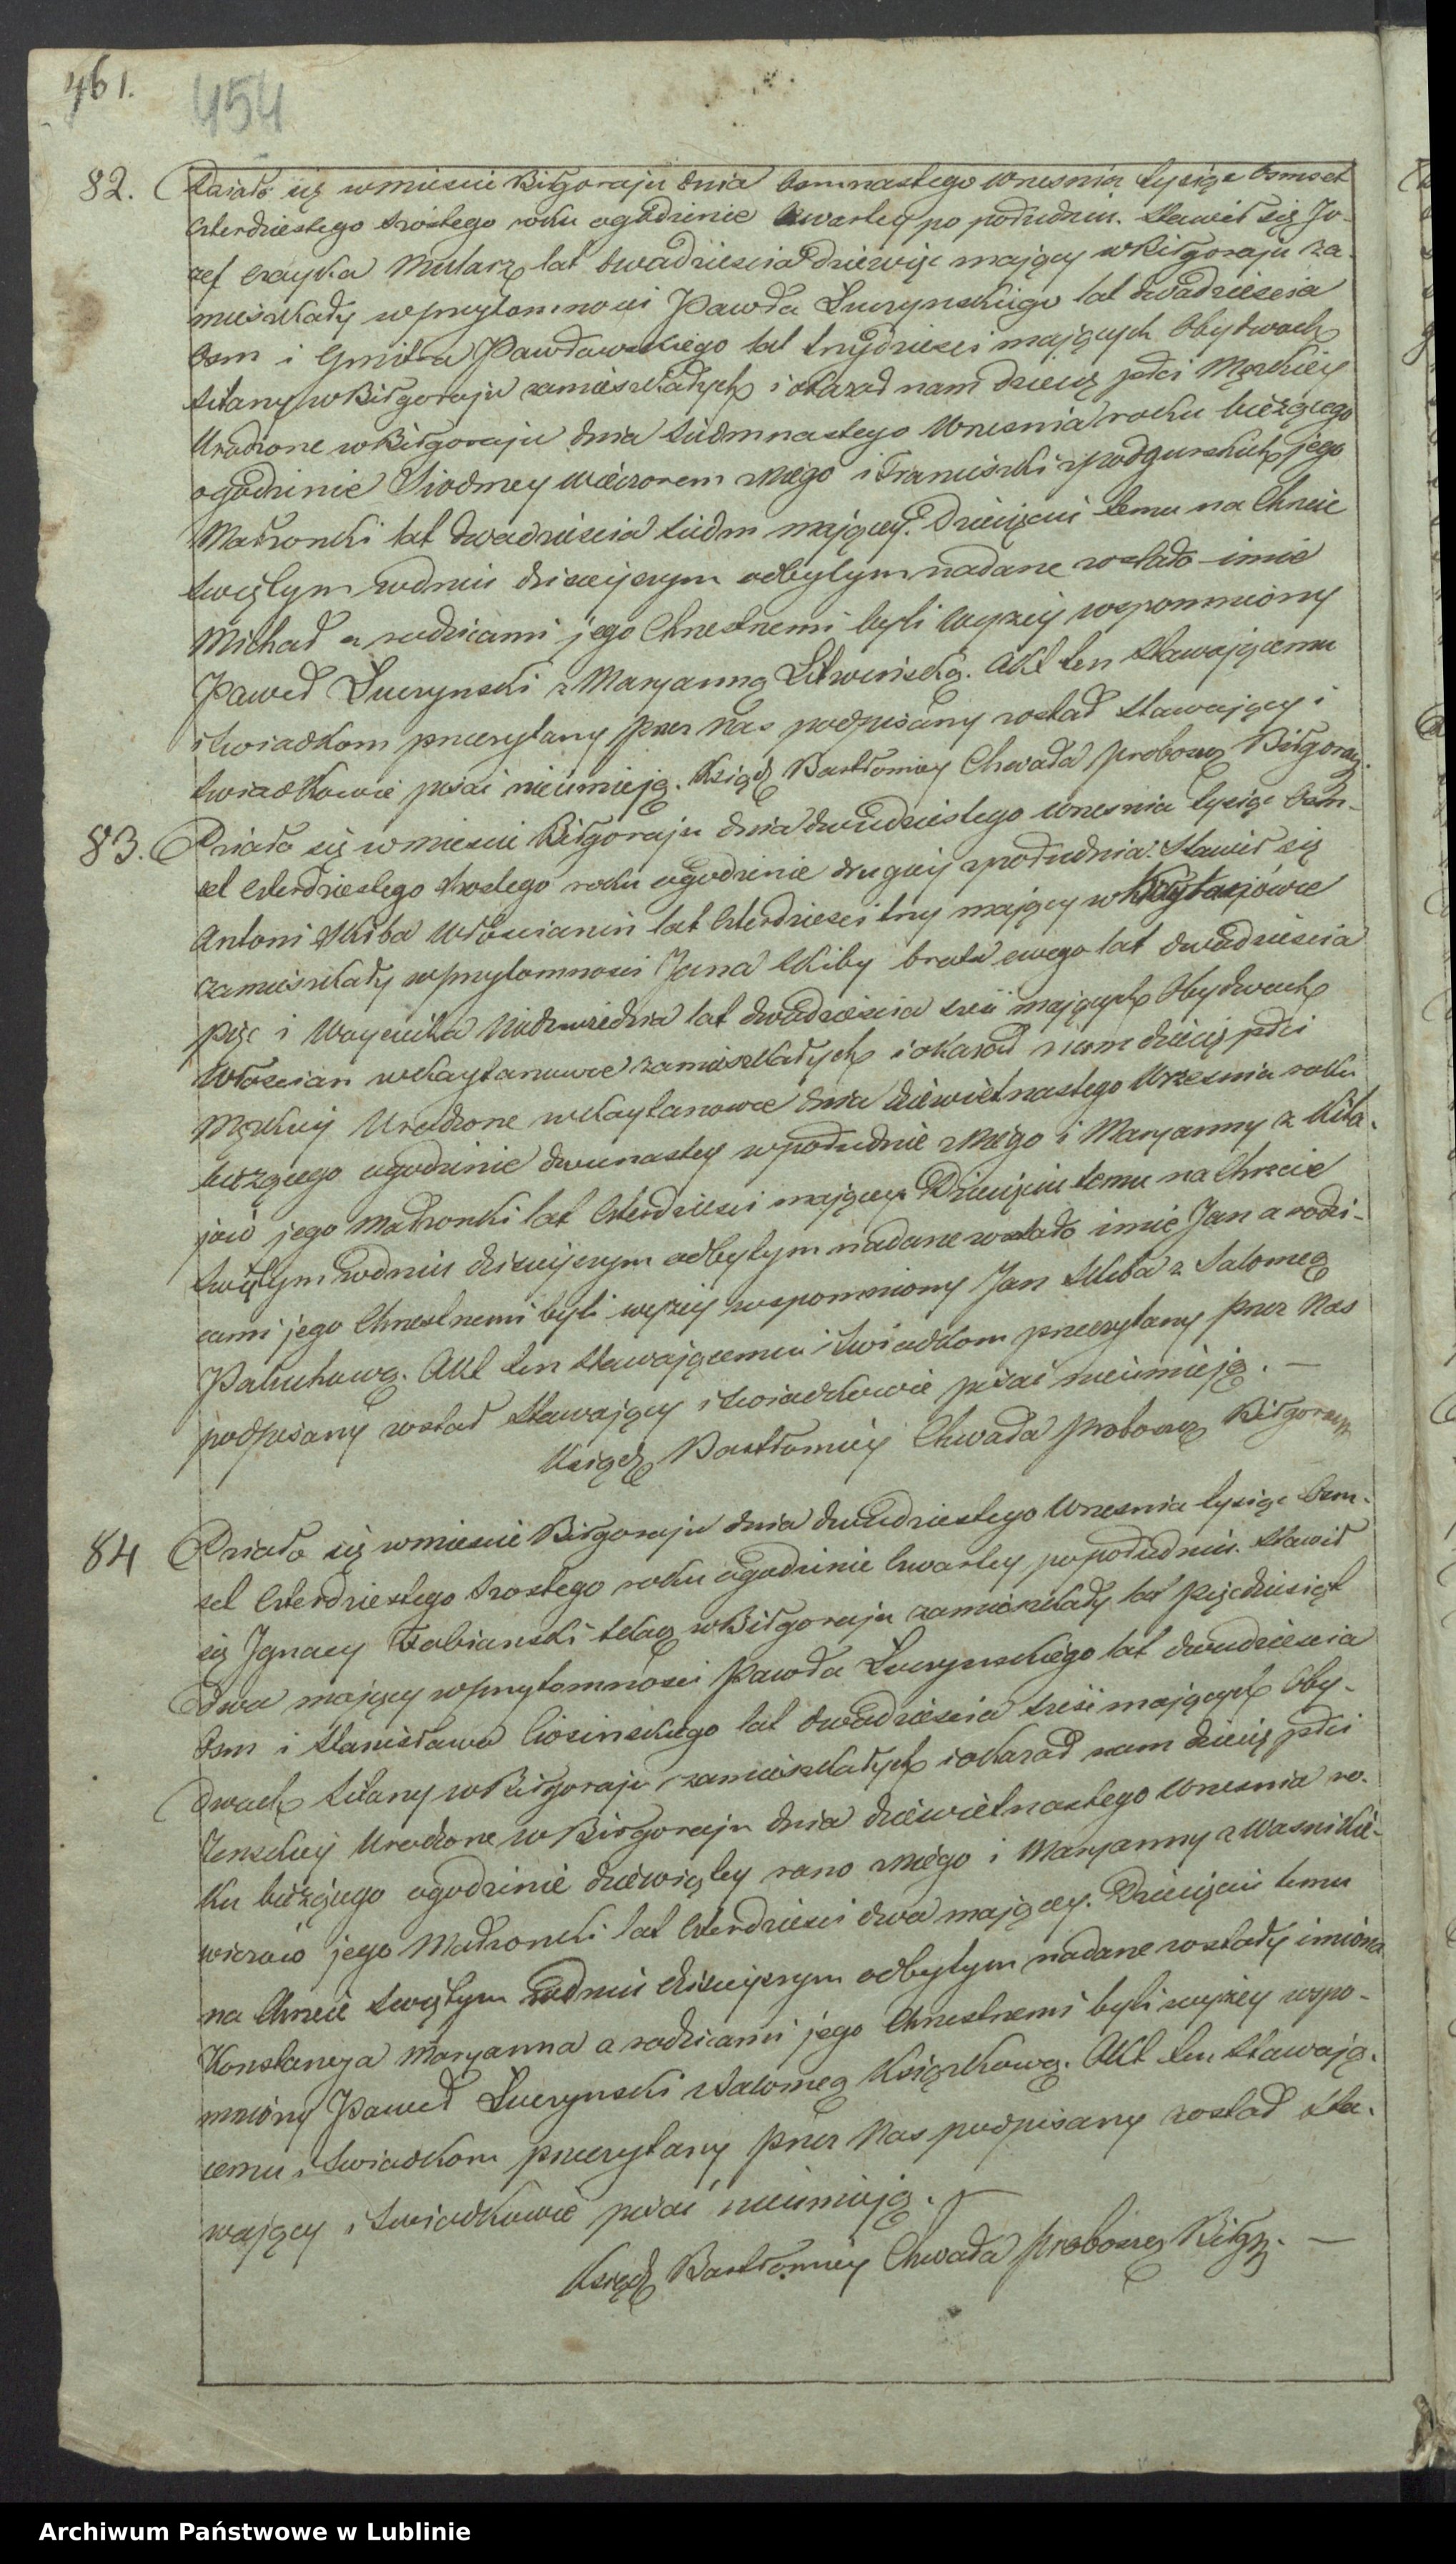 461.
454
82. Działo się w mieście Biłgoraju dnia Osmnastego Wresnia tysiąc Osmset
czterdziestego szostego roku o godzinie czwartey po południu. Stawił się Jo-
zef Czayka Mularz lat dwadziescia dziewięc mający w Biłgoraju za-
mieszkały w przytomnosci Pawła Łuczynskiego lat dwadziescia
Osm i Gmitra Pawławskiego lat trzydziesci mających Obydwoch
Sitarzy w Biłgoraju zamieszkałych i okazał nam dziecię płci Męzkiey
Urodzone w Biłgoraju dnia Siedmnastego Wresnia roku bieżącego
o godzinie Siodmey wieczorem z niego i Franciszki z Podgurskich jego
Małzonki lat dwadziescia siedm mającey. Dziecięciu temu na Chrzcie
Swiętym w dniu dzisieyszym odbytym nadane zostało imie
Michał a rodzicami jego Chrzestnemi byli wyzey wspomniony
Paweł Łuczynski z Maryanną Litwinską. Akt ten Stawającemu
i Swiadkom przeczytany przez Nas podpisany został Stawający i
Swiadkowie pisac nieumieją. Ksiądz Bartłomiey Chwała Proboszcz Biłgoray.
83. Działo się w miescie Biłgoraju dnia dwudziestego Wresnia tysiąc Osm-
set czterdziestego szostego roku o godzinie drugiey z południa. Stawił się
Antoni Skiba Włoscianin lat czterdziesci trzy mający w Kaytanówce
zamieszkały w przytomnosci Jana Skiby brata swego lat dwadziescia
pięc i Woyciecha Niedzwiedzia lat dwadziescia szesć mających Obydwoch
Włoscian w Kaytanowce zamieszkałych i okazał nam dziecię płci
Męzkiey Urodzone w Kaytanowce dnia dziewietnastego Wrzesnia roku
bieżącego o godzinie dwunastey w południe z niego i Maryanny z Kita-
jów jego Małzonki lat czterdziesci mającey. Dziecięciu temu na Chrzcie
Swiętym w dniu dzisieyszym odbytym nadane zostało imie Jan a rodzi-
cami jego Chrzestnemi byli wyzey wspomniony Jan Skiba z Salomeą
Paluchową. Akt ten Stawającemu i Swiadkom przeczytany przez Nas
podpisany został Stawający i Swiadkowie pisac nieumieją. —
Ksiądz Bartłomiey Chwała Proboszcz Biłgoray
84 Działo się w miescie Biłgoraju dnia dwudziestego Wresnia tysiąc Osm-
set czterdziestego szostego roku o godzinie czwartey po południu. Stawił
się Jgnacy Fabianski tkacz w Biłgoraju zamieszkały lat pięcdziesiąt
dwa mający w przytomnosci Pawła Łuczynskiego lat dwadziescia
Osm i Stanisława Ciosinskiego lat dwadziescia szesć mających Oby-
dwoch Sitarzy w Biłgoraju zamieszkałych i okazał nam dziecię płci
Zenskiey Urodzone w Biłgoraju dnia dziewietnastego Wresnia ro-
ku bieżącego o godzinie dziewiątey rano z niego i Maryanny z Wasnikie-
wiczow jego Małzonki lat czterdziesci dwa mającey. Dziecięciu temu
na Chrzcie Swiętym w dniu dzisieyszym odbytym nadane zostały imiona
Konstancya Maryanna a rodzicami jego Chrzestnemi byli wyzey wspo-
mniony Paweł Łuczynski z Salomeą Książkową. Akt ten Stawają-
cemu i Swiadkom przeczytany przez Nas podpisany został Sta-
wający i Swiadkowie pisac nieumieją. —
Ksiądz Bartłomiey Chwała Proboszcz Biłg. —
Archiwum Państwowe w Lublinie